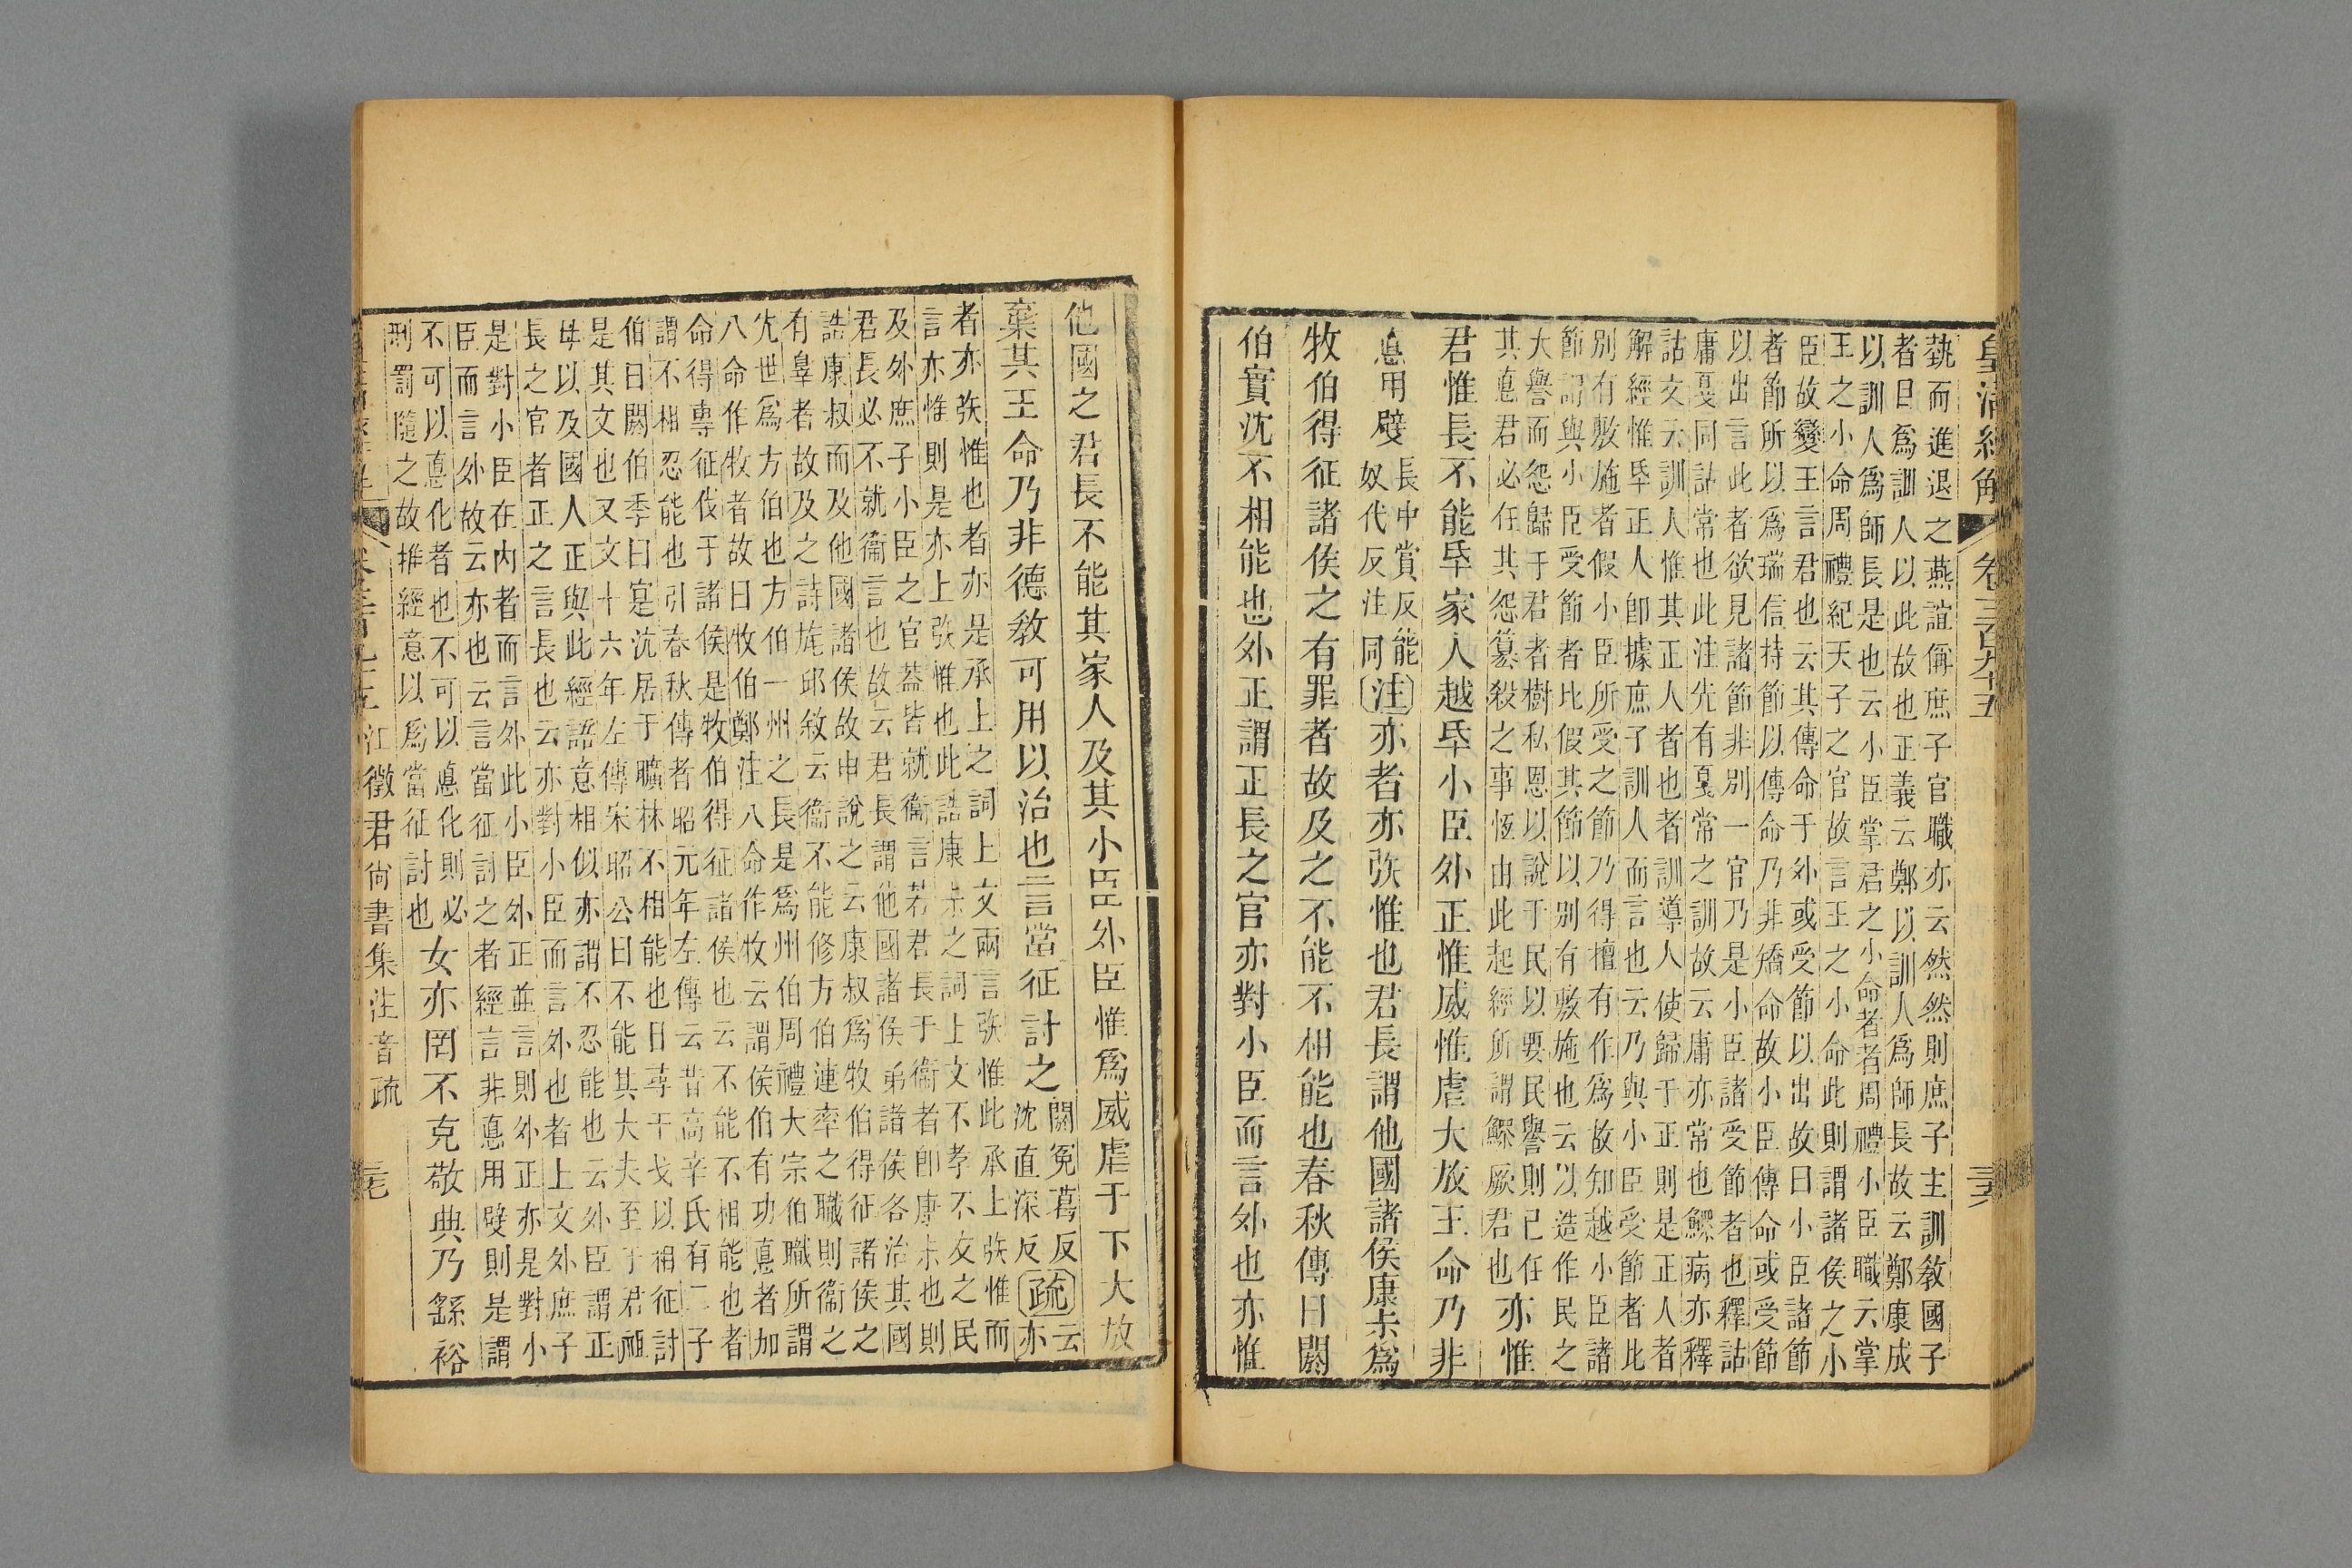 皇清經解 卷三百九十五
埶而進退之燕誼偁庶子官職亦云然然則庶子主訓敎國子
者曰爲訓人以此故也正義云鄭以訓人爲師長故云鄭康成
以訓人爲師長是也云小臣掌君之小命者者周禮小臣職云掌
王之小命周禮紀天子之官故言王之小命此則謂諸侯之小
臣故變王言君也云其傳命于外或受節以出故曰小臣諸節
者節所以爲瑞信持節以傳命乃非矯命故小臣傳命或受節
以出言此者欲見諸節非別一官乃是小臣諸受節者也釋詁
庸戛同詁常也此注先有戛常之訓故云庸亦常也鰥病亦釋
詁文云訓人惟其正人者也者訓導人使歸于正則是正人者
解經惟𠂔正人卽據庶子訓人而言也云乃與小臣受節者比
別有敷施者假小臣所受之節乃得檀有作爲故知越小臣諸
節謂與小臣受節者比假其節以別有敷施也云以造作民之
大譽而怨歸于君者樹私恩以說于民以要民譽則已任
其悳君必任其怨簒殺之事恆由此起經所謂鰥厥君也 亦惟
君惟長不能𠂔家人越𠂔小臣外正惟威惟虐大放王命乃非
悳用嬖 長中賞反能
奴代反注同 注 亦者亦弞惟也君長謂他國諸侯康尗爲
牧伯得征諸侯之有罪者故及之不能不相能也春秋傳曰閼
伯實沈不相能也外正謂正長之官亦對小臣而言外也亦惟
三六
他國之君長不能其家人及其小臣外臣惟爲威虐于下大放
棄其王命乃非德敎可用以治也言當征討之 閼寃葛反
沈直深反 疏 云
亦
者亦弞惟也者亦是承上之詞上文兩言弞惟此承上弞惟而
言亦惟則是亦上弞惟也此誥康尗之詞上文不孝不友之民
及外庶子小臣之官葢皆就衞言若君長于衞者卽康尗也則
君長必不就衞言也故云君長謂他國諸侯弟諸侯各治其國
誥康叔而及他國諸侯故申說之云康叔爲牧伯得征諸侯之
有辠者故及之詩旄邱敘云衞不能修方伯連率之職則衞之
先世爲方伯也方伯一州之長是爲州伯周禮大宗伯職所謂
八命作牧者故曰牧伯鄭注八命作牧云謂侯伯有功悳者加
命得專征伐于諸侯是牧伯得征諸侯也云不能不相能也者
謂不相忍能也引春秋傳者昭元年左傳云昔高辛氏有二子
伯曰閼伯季曰寔沈居于曠林不相能也日尋干戈以相征討
是其文也又文十六年左傳宋昭公曰不能其大夫至于君祖
母以及國人正與此經語意相似亦謂不忍能也云外臣謂正
長之官者正之言長也云亦對小臣而言外也者上文外庶子
是對小臣在內者而言外此小臣外正並言則外正亦是對小
臣而言外故云亦也云言當征討之者經言非悳用嬖則是謂
不可以悳化者也不可以悳化則必
刑罰隨之故推經意以爲當征討也 女亦罔不克敬典乃繇裕
江徵君尙書集注音疏
三七